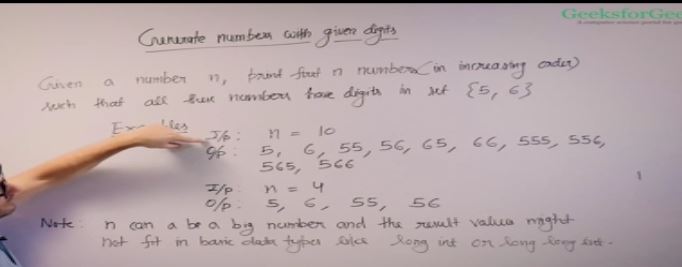 GeeksforGee
A computer science portal for ge
Generate numbers with given digits
Given a number n, print first n numbers (in increasing order)
such that all these numbers have digits in set {5, 6}
I/p : n = 10
O/p : 5, 6, 55, 56, 65, 66, 555, 556,
565, 566
I/p : n = 4
O/p : 5, 6, 55, 56
Note : n can a be a big number and the result values might
not fit in basic data types like long int or long long int.